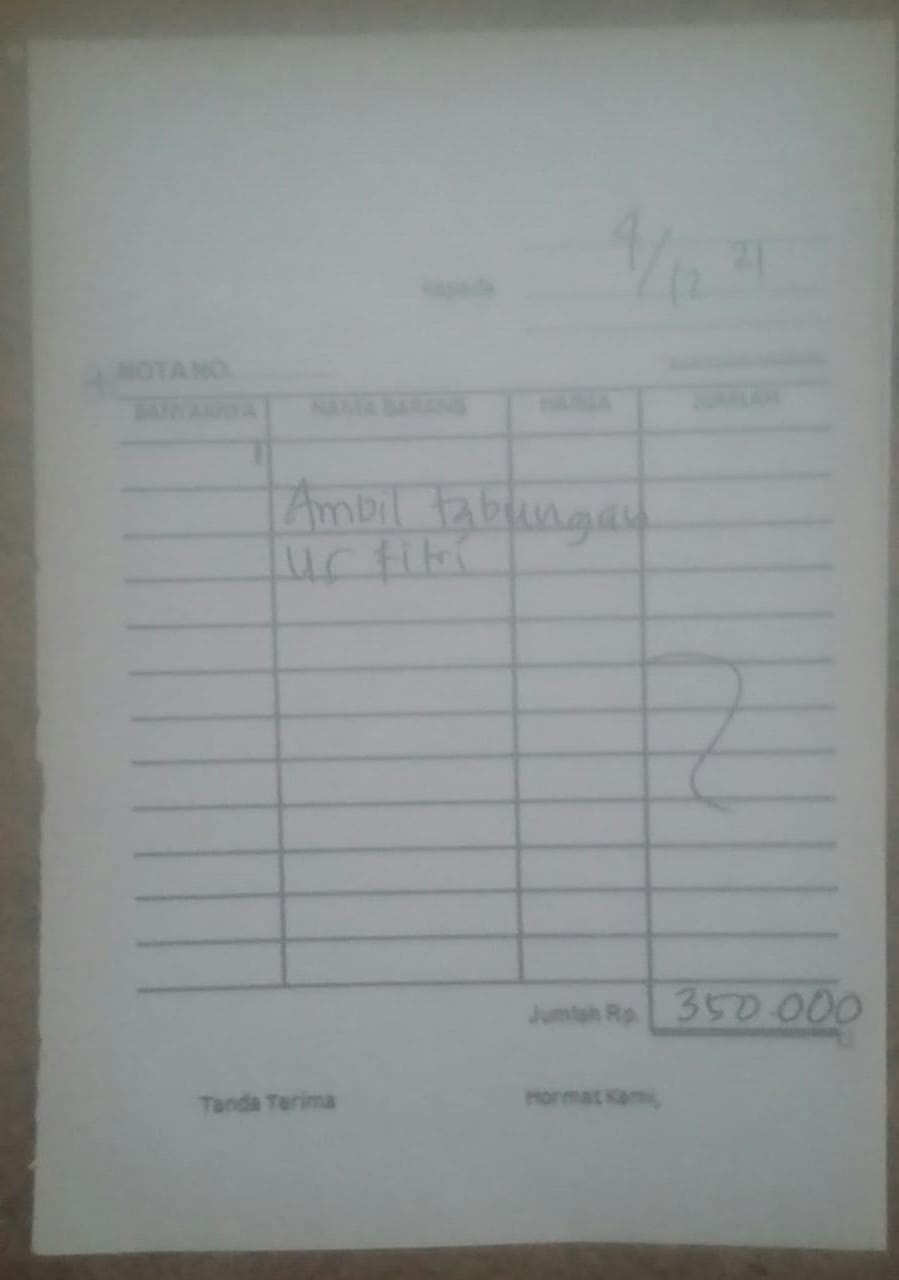 4/12 21
Kepada
NOTA NO.
BANYAKNYA NAMA BARANG HARGA JUMLAH
Ambil tabungan
Us fitri
Jumlah Rp. 350.000
Tanda Terima Hormat Kami,